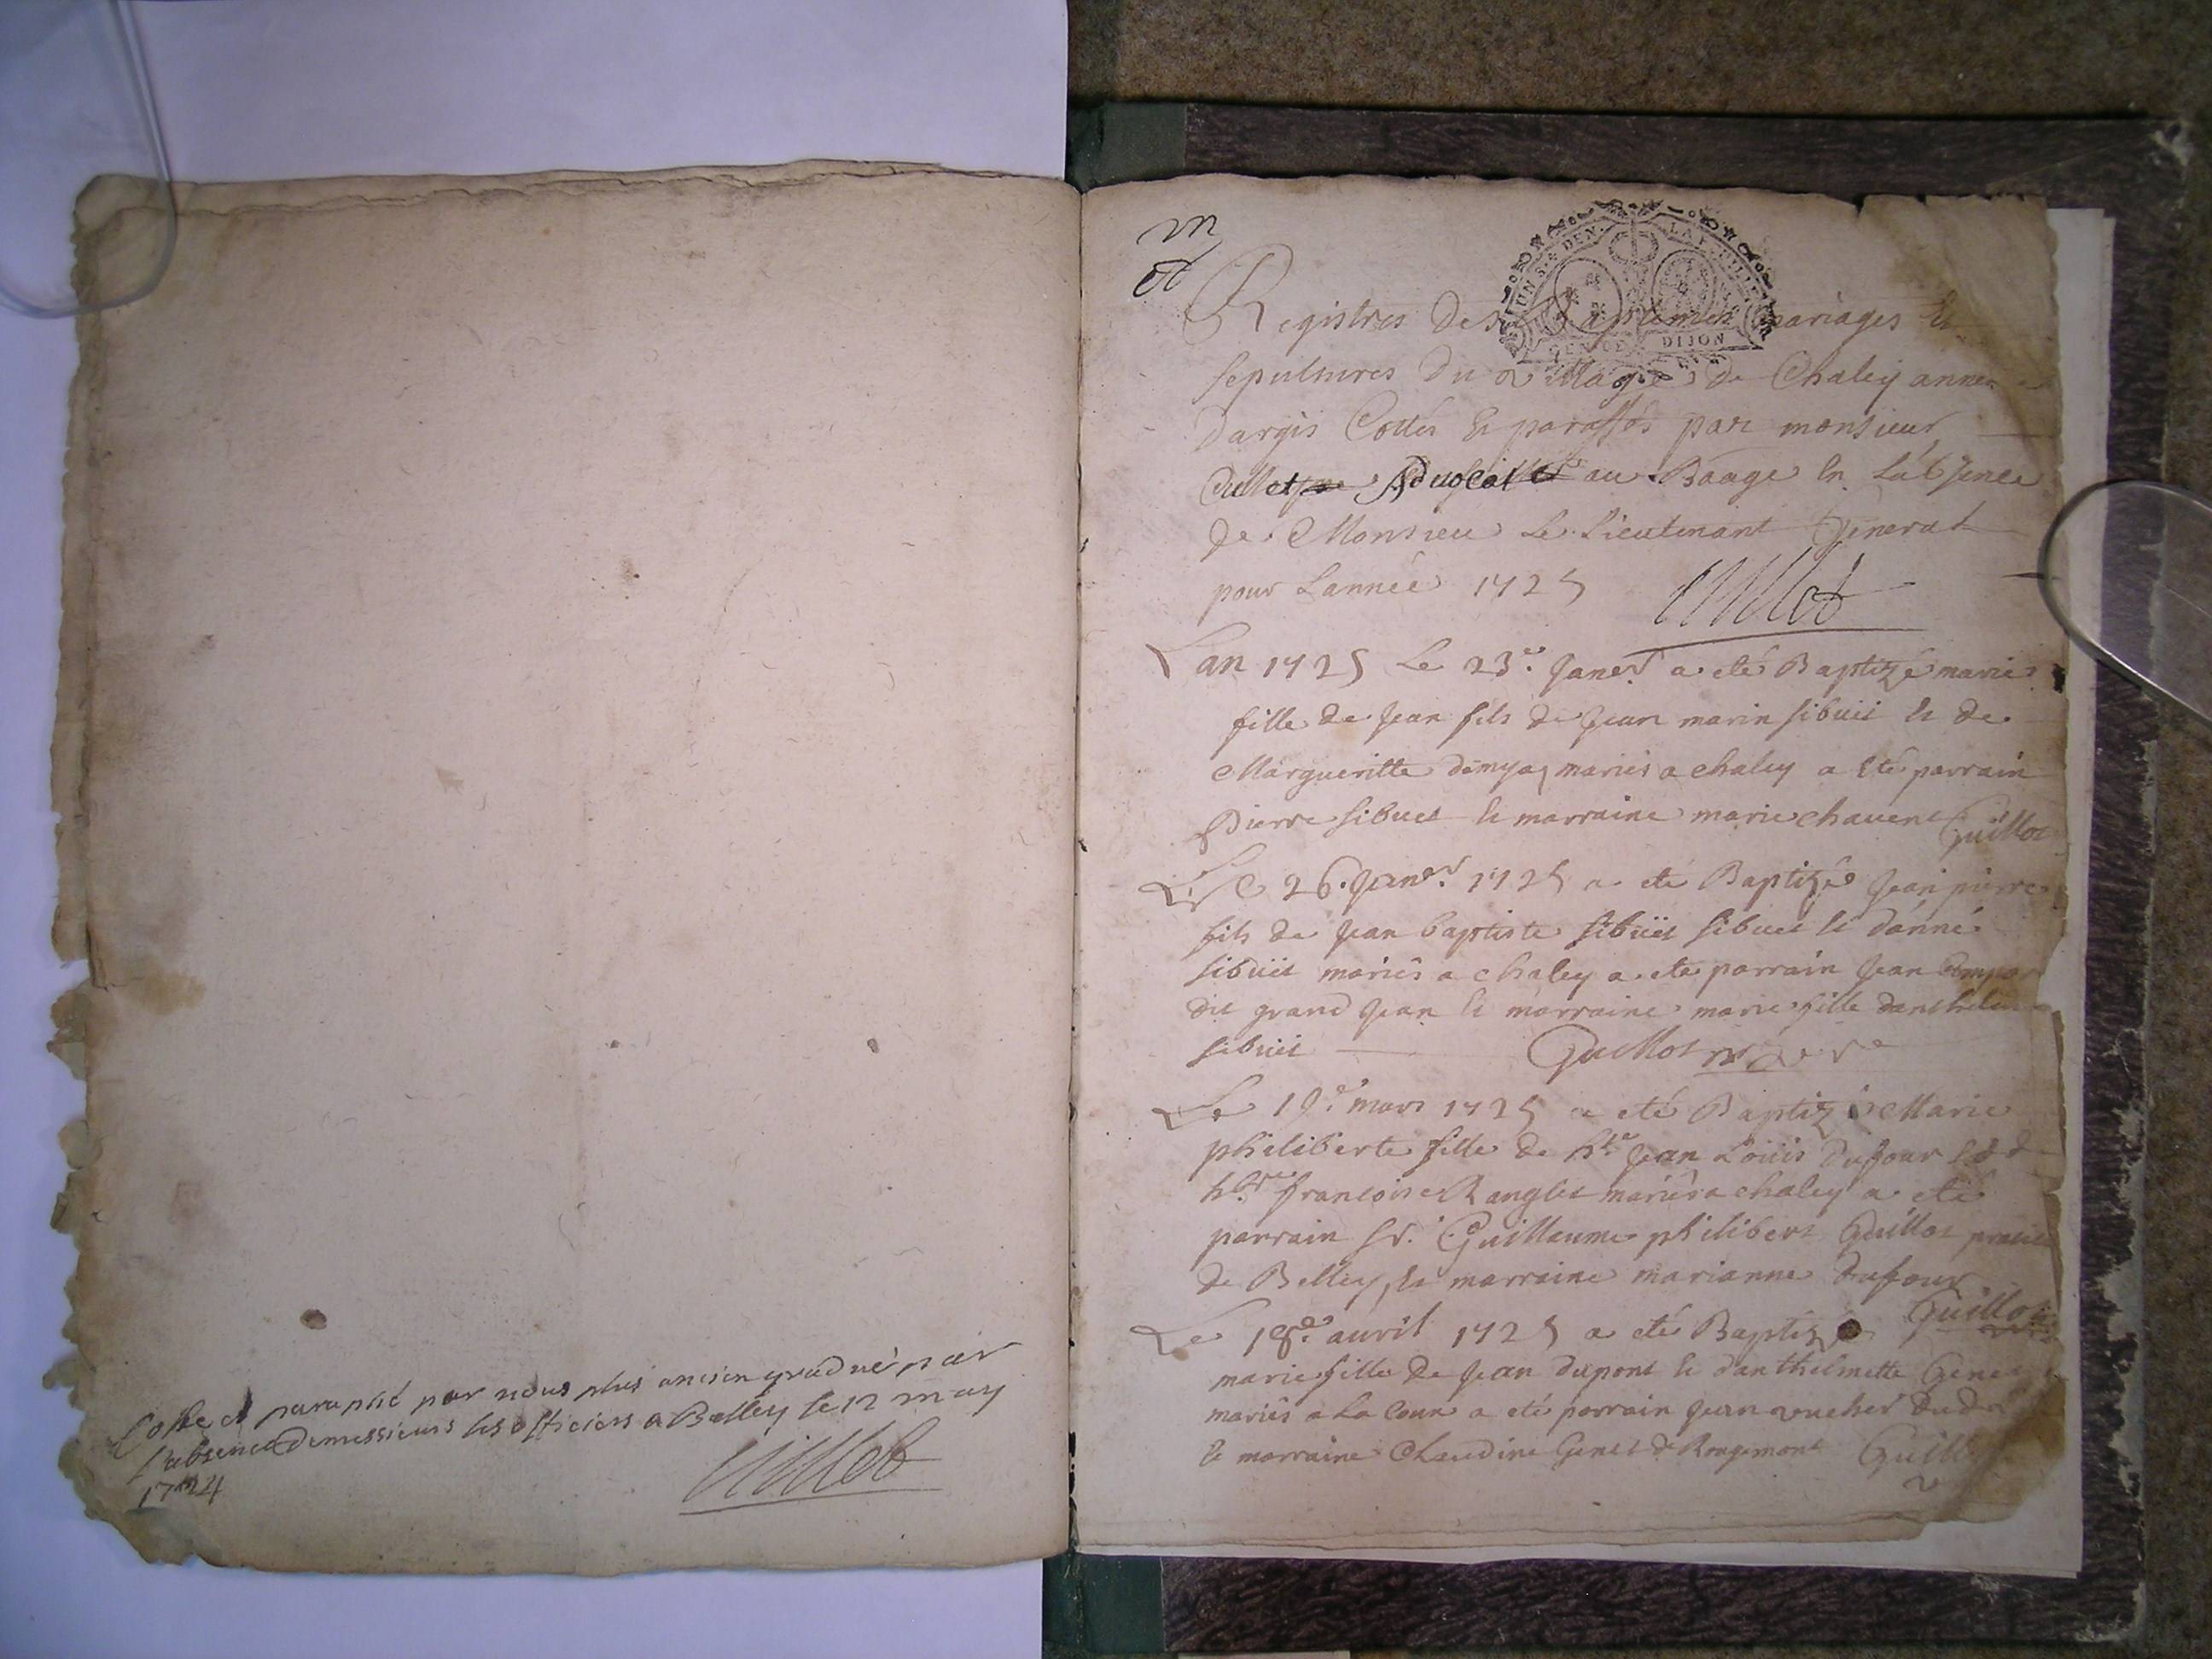 Cotte et paraphé par nous plus ancien gradué par
l'absence de messieurs les officiers a Belley le 12 may
1724
Registres des Baptemes mariages et
sepultures du village de Chaley annexe
dargis Cottés et paraffés par monsieur
Advocat au Baage en Labsence
de Monsieu le Lieutenant General
pour Lannée 1725
Lan 1725 Le 23e Janer a eté Baptizé marie
fille de Jean fils de Jean marin sibuet et de
Margueritte mariés a chaley a eté parrain
Pierre sibuet et marraine marie chavent Guillot
Le 26 Janer 1725 a eté Baptizé Jean pierre
fils de Jean baptiste sibuet sibuet et danne
sibuet mariés a chaley a ete parrain Jean
dit grand Jean et marraine marie fille danthelme
sibuet Guillot
Le mars 1725 a eté Baptizé Marie
philiberte fille de hble Jean Louis Dufour et de
hble francoise Ranglet mariés a chaley a eté
parrain Sr. Guillaume philibert Guillot
de Belley, et marraine marianne dufour
Guillot
Le 18e avril 1725 a eté Baptizé
marie fille de Jean dupont et danthelmette Genet
mariés a La Cour a eté parrain Jean vucher dudt
et marraine Claudine Genet de Rougemont Guillot
UN S. 4 DEN. LA FEUILLE
GEN. DE DIJON